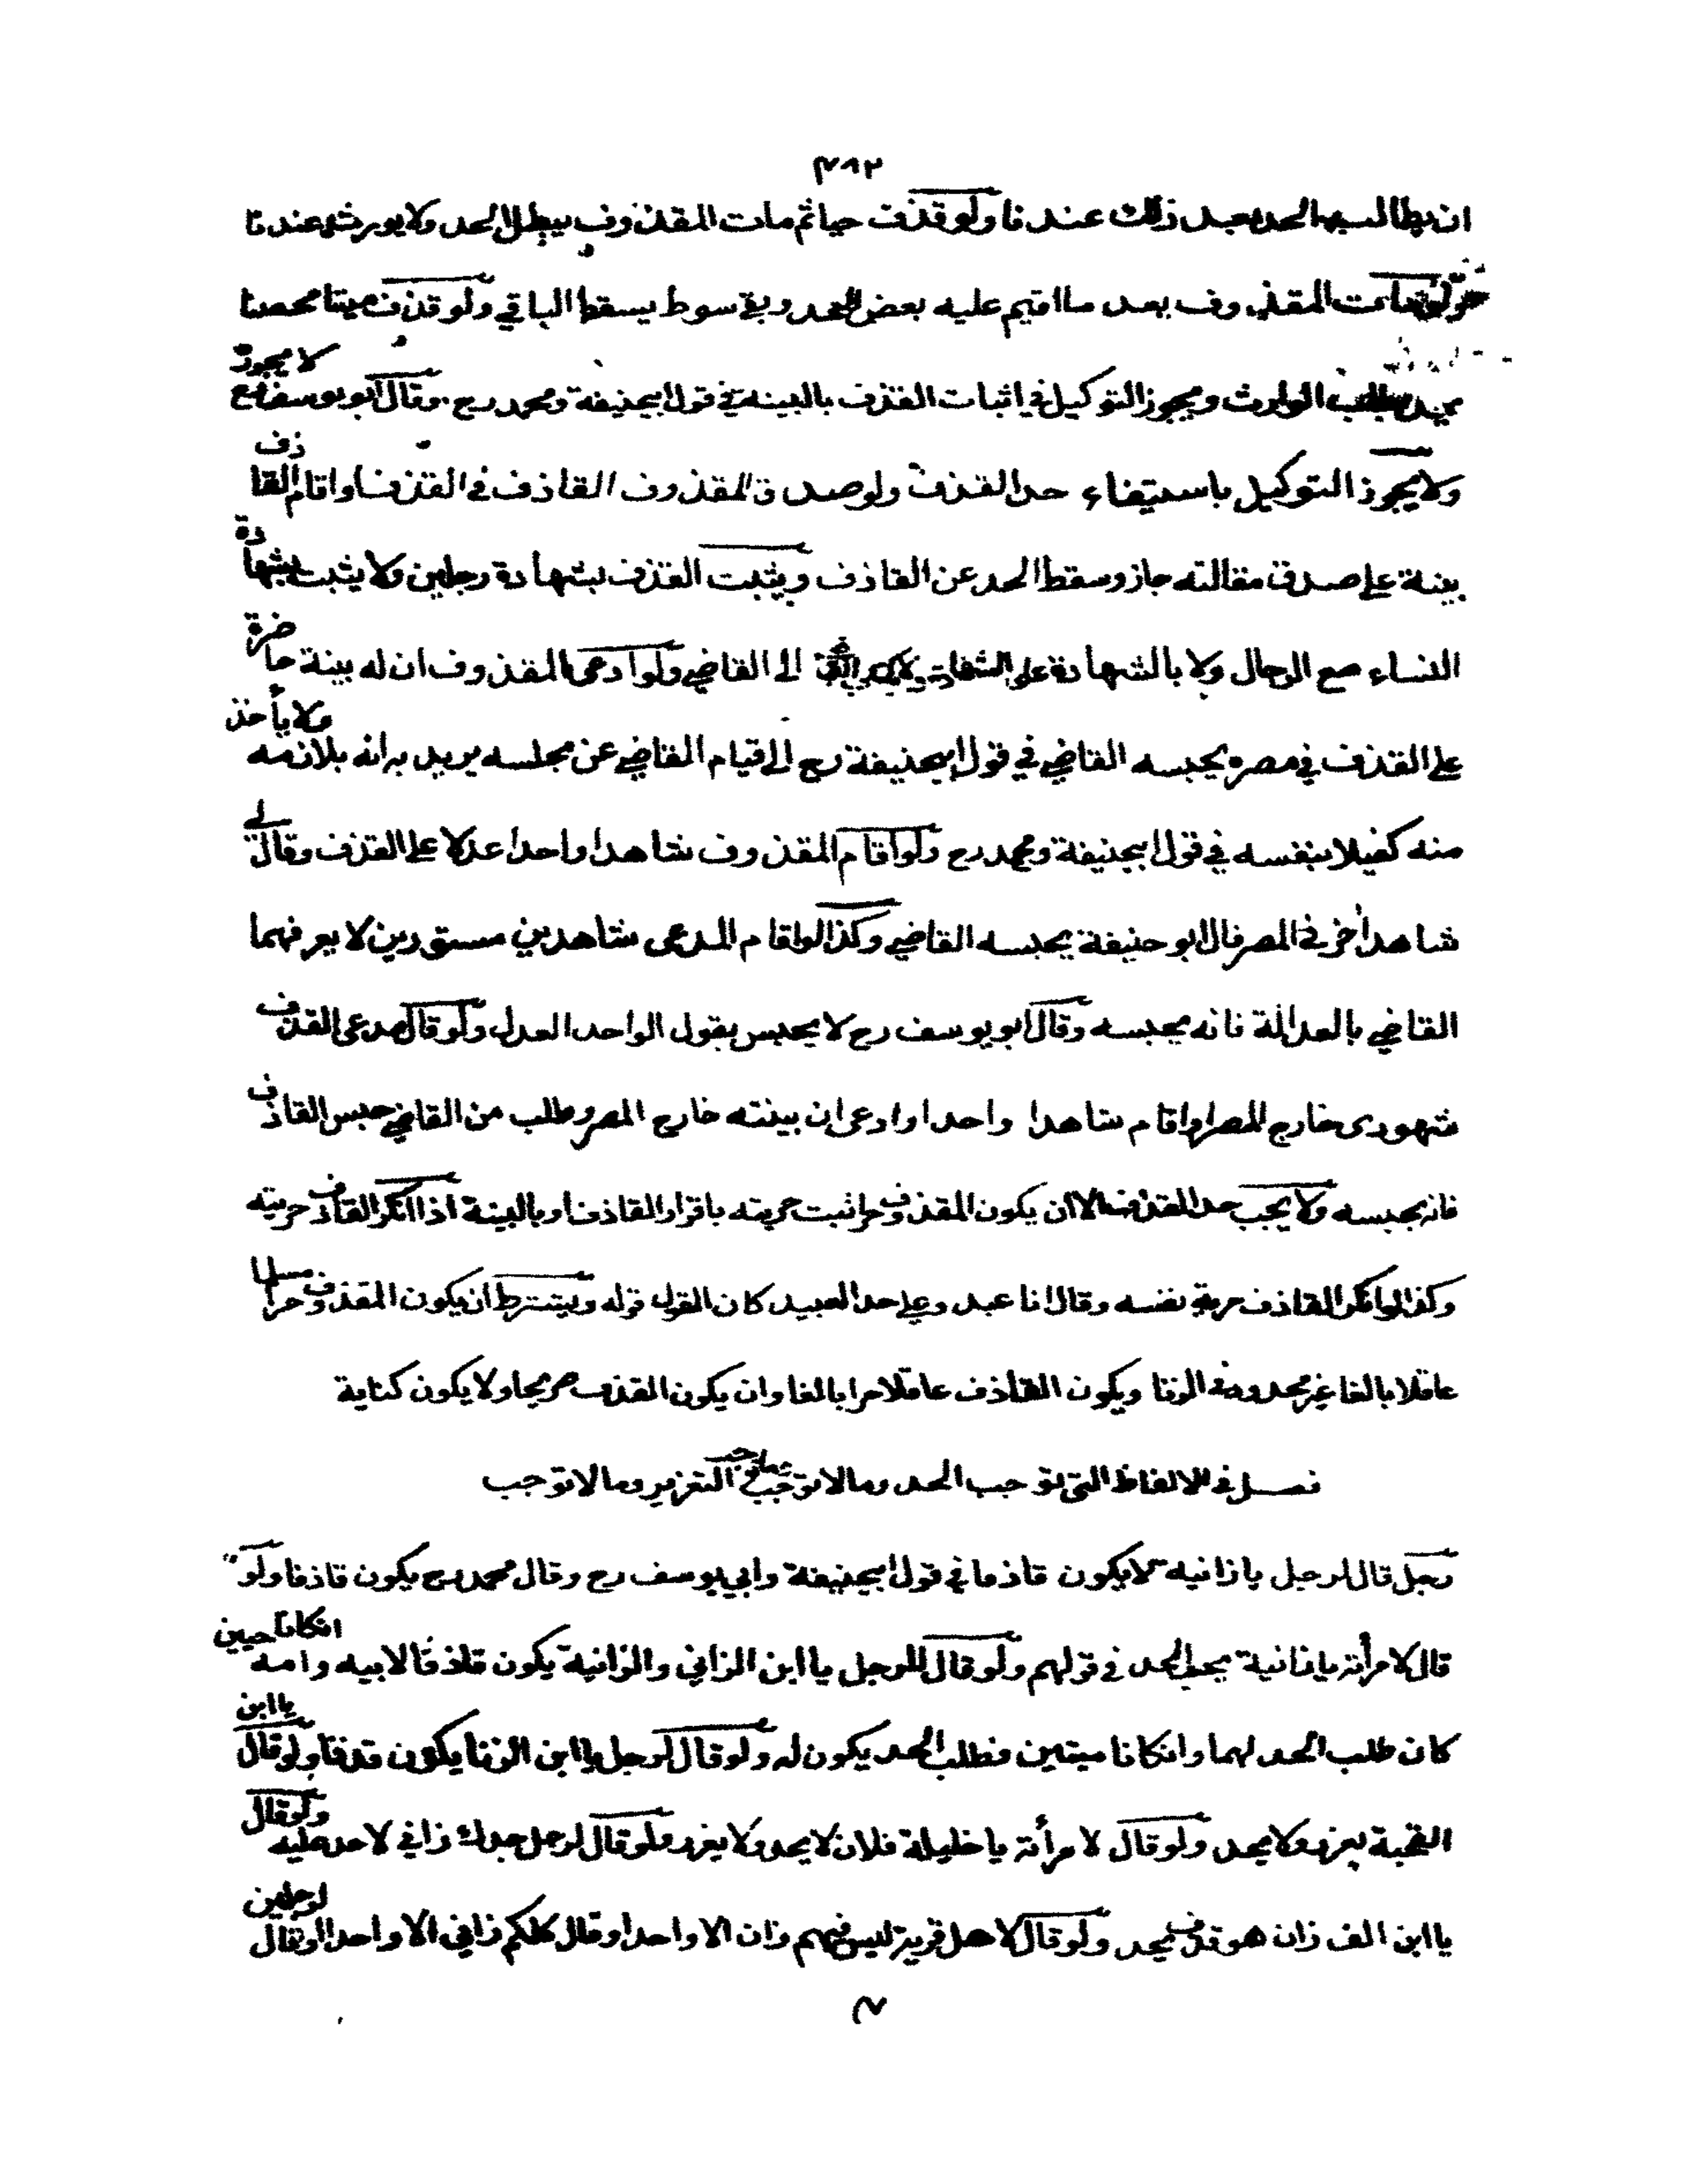 ٤٨٢
ان يطالبه الحد بعد ذلك عندنا ولو قذف حيا ثم مات المقذوف يبطل الحد ولا يورث عندنا
حتى لو مات المقذوف بعد ما اقيم عليه بعض الحد وبقي سوط يسقط الباقي ولو قذف ميتا محصنا
يحد بطلب الوارث ويجوز التوكيل في اثبات القذف بالبينة في قول ابيحنيفة ومحمد رح وقال ابو يوسف رح لا يجوز
ولا يجوز التوكيل باستيفاء حد القذف ولو صدق المقذوف القاذف في القذف او اقام القاذف
بينة على صدق مقالته جاز وسقط الحد عن القاذف ويثبت القذف بشهادة رجلين ولا يثبت بشهادة
النساء مع الرجال ولا بالشهادة على الشهادة ولا بكتاب القاضي الى القاضي ولو ادعى المقذوف ان له بينة حاضرة
على القذف في مصره يحبسه القاضي في قول ابيحنيفة رح الى قيام القاضي عن مجلسه يريد به انه يلازمه ولا يأخذ
منه كفيلا بنفسه في قول ابيحنيفة ومحمد رح ولو اقام المقذوف شاهدا واحدا عدلا على القذف وقال لي
شاهد اخر في المصر قال ابو حنيفة يحبسه القاضي وكذا لو اقام المدعى شاهدين مستورين لا يعرفهما
القاضي بالعدالة فانه يحبسه وقال ابو يوسف رح لا يحبس بقول الواحد العدل ولو قال مدعى القذف
شهودى خارج المصر او اقام شاهدا واحدا وادعى ان بينته خارج المصر وطلب من القاضي حبس القاذف
فانه يحبسه ولا يجب حد القذف الا ان يكون المقذوف حرا ثبت حريته باقرار القاذف او بالبينة اذا انكر القاذف حريته
وكذا لو انكر القاذف حرية نفسه وقال انا عبد وعلي حد العبيد كان القول قوله ويشترط ان يكون المقذوف حرا مسلما
عاقلا بالغا غير محدود في الزنا ويكون القاذف عاقلا حرا بالغا وان يكون القذف صريحا ولا يكون كناية
فصل في الالفاظ التى توجب الحد وما لا توجب وما يوجب التعزير وما لا توجب
رجل قال لرجل يا زانية لا يكون قاذفا في قول ابيحنيفة وابي يوسف رح وقال محمد رح يكون قاذفا ولو
قال لامرأته يا زانية يجب الحد في قولهم ولو قال للرجل يا ابن الزاني والزانية يكون قاذفا لابيه وامه انكانا حيين
كان طلب الحد لهما وانكانا ميتين فطلب الحد يكون له ولو قال لرجل يا ابن الزنا يكون قذفا ولو قال يا ابن
القحبة يعزر ولا يحد ولو قال لامرأته يا خليلة فلان لا يحد ولا يعزر ولو قال لرجل جدك زاني لا حد عليه ولو قال
يا ابن الف زان هو قذف يحد ولو قال لاهل قرية ليس فيهم زان الا واحد او قال كلكم زاني الا واحدا او قال لرجلين